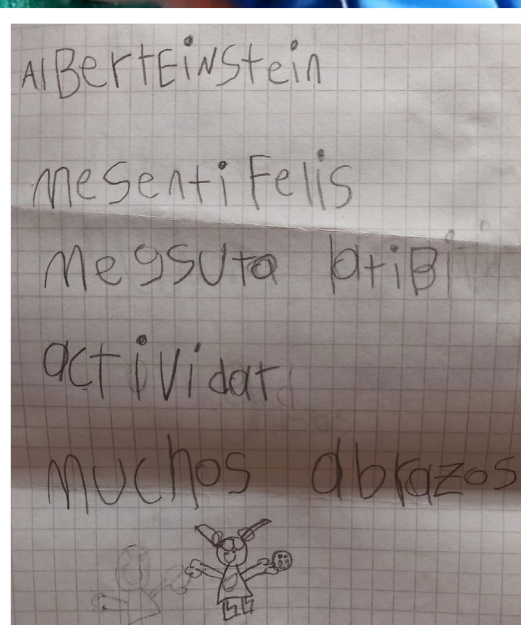 AlBertEiNStein
meSenti Felis
Me gsuta latiBi
actividat
muchos abrazos